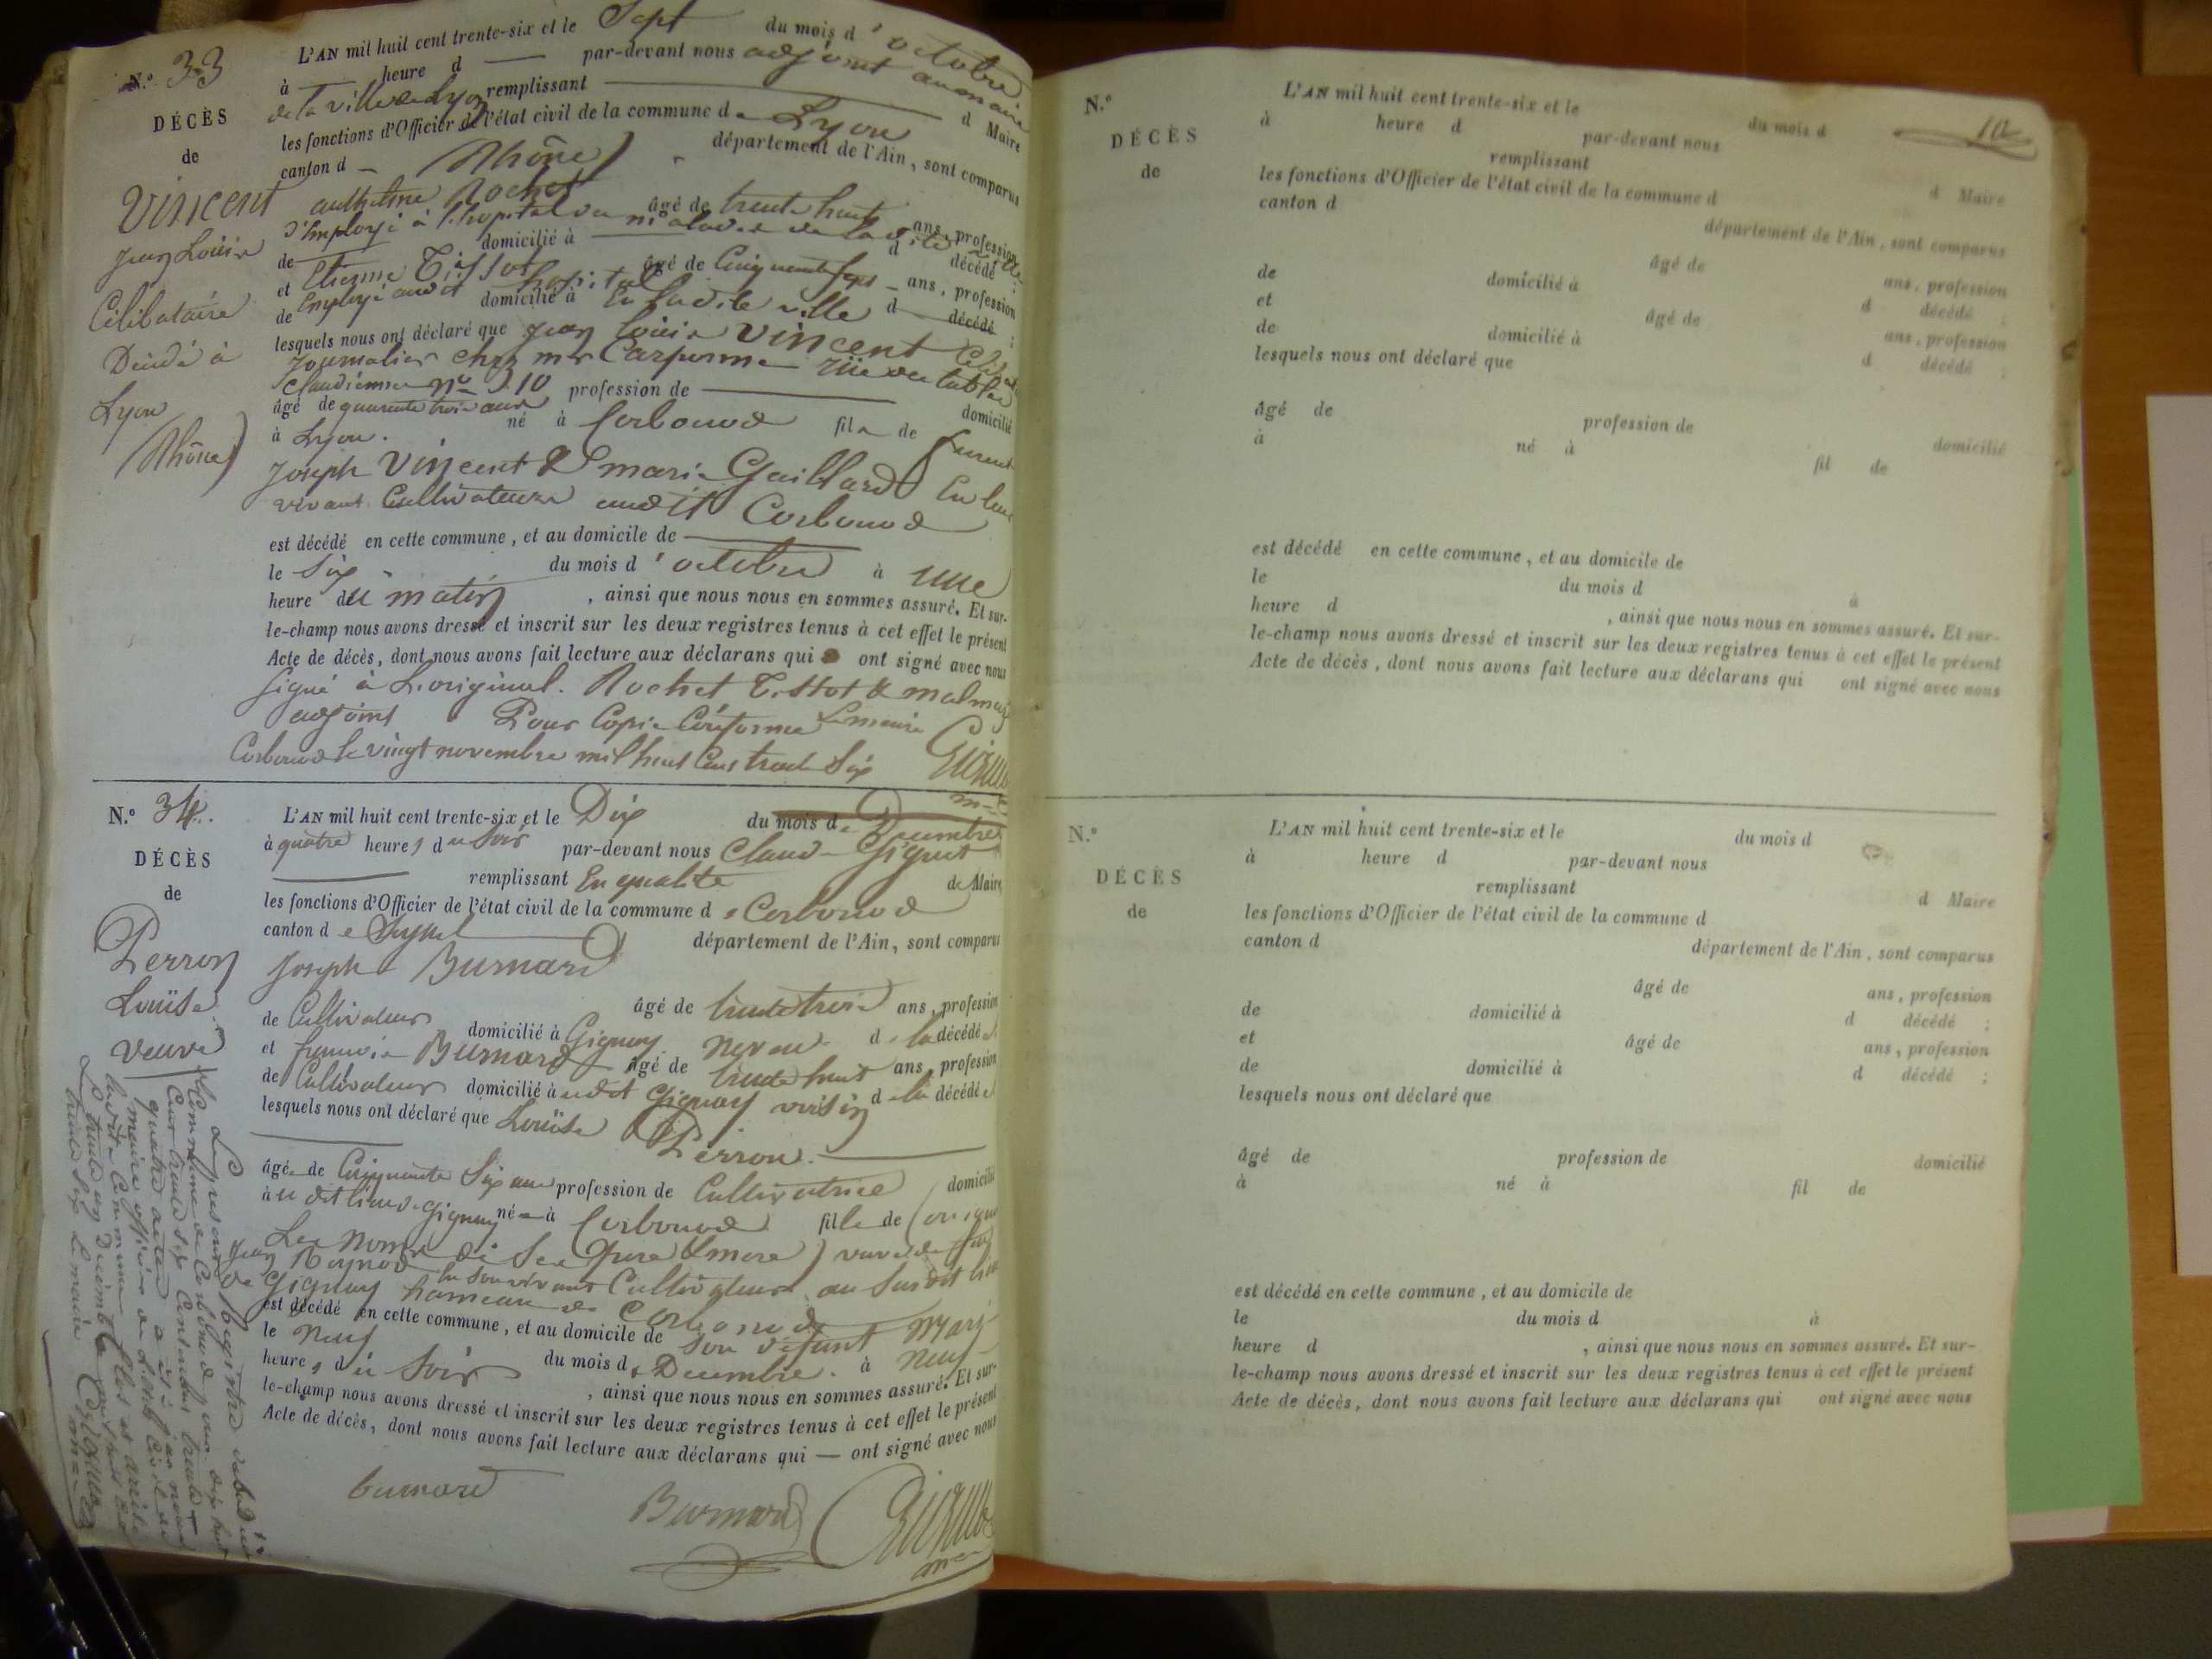 N.º 33
DÉCÈS
de
Vincent
Jean Louis
Célibataire
Décédé à
Lyon
(Rhône)
L'AN mil huit cent trente-six et le Sept du mois d'octobre
à heure d par-devant nous adjoint au maire
de la ville de Lyon remplissant d Maire
les fonctions d'Officier de l'état civil de la commune de Lyon
canton d (Rhône) département de l'Ain, sont comparus
anthelme Rochet âgé de trente huit ans, profession
d'Employé à l'hopital des malades de la dite ville
de domicilié à d décédé ;
et Etienne Tissot âgé de Cinquante sept ans, profession
de Employé audit hopital domicilié à En ladite ville d décédé ;
lesquels nous ont déclaré que jean louis Vincent
Journalier chez mr Rüe des tables
Claudienne nº 10 profession de
âgé de quarante trois ans domicilié
à Lyon. né à Corbonod fils de
Joseph Vincent & marie Gaillard En leur
vivant Cultivateurs audit Corbonod
est décédé en cette commune, et au domicile de
le Six du mois d'octobre à une
heure du matin , ainsi que nous nous en sommes assuré. Et sur-
le-champ nous avons dressé et inscrit sur les deux registres tenus à cet effet le présent
Acte de décès, dont nous avons fait lecture aux déclarans qui ont signé avec nous
signé à L'original. Rochet Tissot &
adjoint Pour Copie Conforme Le maire
Corbonod le vingt novembre mil huit Cent trente Six
N.º 34.
DÉCÈS
de
Perron
Louïse
veuve
L'AN mil huit cent trente-six et le Dix du mois de Decembre
à quatre heures du soir par-devant nous Claude
remplissant En qualité de Maire
les fonctions d'Officier de l'état civil de la commune de Corbonod
canton de Seyssel département de l'Ain, sont comparus
Joseph Burnard
âgé de trente trois ans, profession
de Cultivateur domicilié à Gignez neveu de la décédée
et françois Burnard âgé de trente huit ans, profession
de Cultivateur domicilié à udit Gignez voisin de la décédée
lesquels nous ont déclaré que Louïse
Perron.
âgée de Cinquante Six ans profession de Cultivatrice domicilié
à u dit lieu de Gignez née à Corbonod fille de (on ignore
Les noms de Ses père & mere) veuve de
jean en son vivant Cultivateur au Susdit lieu
de Gignez hameau de Corbonod
est décédé en cette commune, et au domicile de son défunt mari
le neuf du mois de Decembre à neuf
heures du Soir , ainsi que nous nous en sommes assuré. Et sur-
le-champ nous avons dressé et inscrit sur les deux registres tenus à cet effet le présent
Acte de décès, dont nous avons fait lecture aux déclarans qui — ont signé avec nous
burnard
Burnard
Le présent Registre
Commune de Corbonod pour
Cent trente six Contenant trente
quatre actes a été par nous
maire officier de l'état Civil de
ladite Commune Clos et arrêté
Le trente un Décembre mil huit Cent
trente Six Le maire
10
N.º
DÉCÈS
de
L'AN mil huit cent trente-six et le du mois d
à heure d par-devant nous
remplissant d Maire
les fonctions d'Officier de l'état civil de la commune d
canton d département de l'Ain, sont comparus
âgé de ans, profession
de domicilié à d décédé ;
et âgé de ans, profession
de domicilié à d décédé ;
lesquels nous ont déclaré que
âgé de profession de domicilié
à né à fil de
est décédé en cette commune, et au domicile de
le du mois d à
heure d , ainsi que nous nous en sommes assuré. Et sur-
le-champ nous avons dressé et inscrit sur les deux registres tenus à cet effet le présent
Acte de décès, dont nous avons fait lecture aux déclarans qui ont signé avec nous
N.º
DÉCÈS
de
L'AN mil huit cent trente-six et le du mois d
à heure d par-devant nous
remplissant d Maire
les fonctions d'Officier de l'état civil de la commune d
canton d département de l'Ain, sont comparus
âgé de ans, profession
de domicilié à d décédé ;
et âgé de ans, profession
de domicilié à d décédé ;
lesquels nous ont déclaré que
âgé de profession de domicilié
à né à fil de
est décédé en cette commune, et au domicile de
le du mois d à
heure d , ainsi que nous nous en sommes assuré. Et sur-
le-champ nous avons dressé et inscrit sur les deux registres tenus à cet effet le présent
Acte de décès, dont nous avons fait lecture aux déclarans qui ont signé avec nous